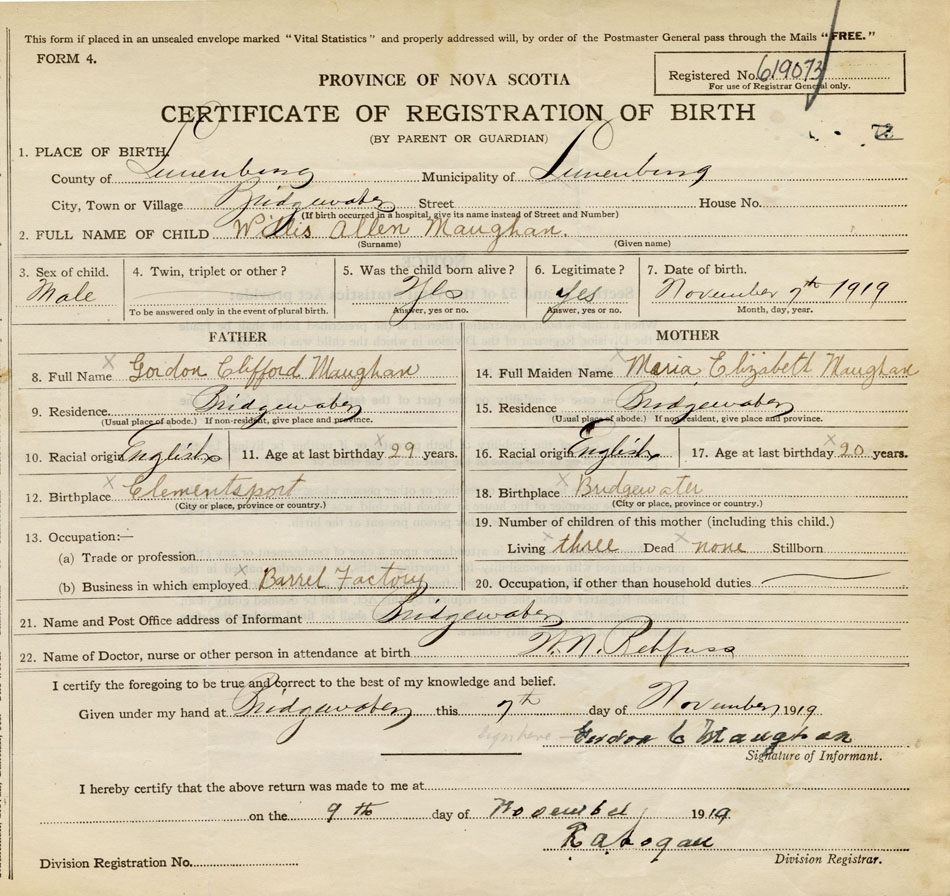 This form if placed in an unsealed envelope marked "Vital Statistics" and properly addressed will, by order of the Postmaster General pass through the Mails "FREE."
FORM 4.
Registered No. 619073
For use of Registrar General only.
PROVINCE OF NOVA SCOTIA
CERTIFICATE OF REGISTRATION OF BIRTH
(BY PARENT OR GUARDIAN)
1. PLACE OF BIRTH.
County of Lunenburg Municipality of Lunenburg
City, Town or Village Bridgewater Street House No.
(If birth occurred in a hospital, give its name instead of Street and Number)
2. FULL NAME OF CHILD Willis Allen Maughan.
(Surname) (Given name)
3. Sex of child. Male
4. Twin, triplet or other?
To be answered only in the event of plural birth.
5. Was the child born alive? Yes
Answer, yes or no.
6. Legitimate? Yes
Answer, yes or no.
7. Date of birth. November 7th 1919
Month, day, year.
FATHER
8. Full Name Gordon Clifford Maughan
9. Residence Bridgewater
(Usual place of abode.) If non-resident, give place and province.
10. Racial origin English 11. Age at last birthday 29 years.
12. Birthplace Clementsport
(City or place, province or country.)
13. Occupation:—
(a) Trade or profession
(b) Business in which employed Barrel Factory
MOTHER
14. Full Maiden Name Maria Elizabeth Maughan
15. Residence Bridgewater
(Usual place of abode.) If non-resident, give place and province.
16. Racial origin English 17. Age at last birthday 20 years.
18. Birthplace Bridgewater
(City or place, province or country.)
19. Number of children of this mother (including this child.)
Living three Dead none Stillborn
20. Occupation, if other than household duties
21. Name and Post Office address of Informant Bridgewater
22. Name of Doctor, nurse or other person in attendance at birth W. N. Rehfuss
I certify the foregoing to be true and correct to the best of my knowledge and belief.
Given under my hand at Bridgewater this 7th day of November 1919
Gordon C Maughan
Signature of Informant.
I hereby certify that the above return was made to me at
on the 9th day of November 1919
Division Registrar.
Division Registration No.